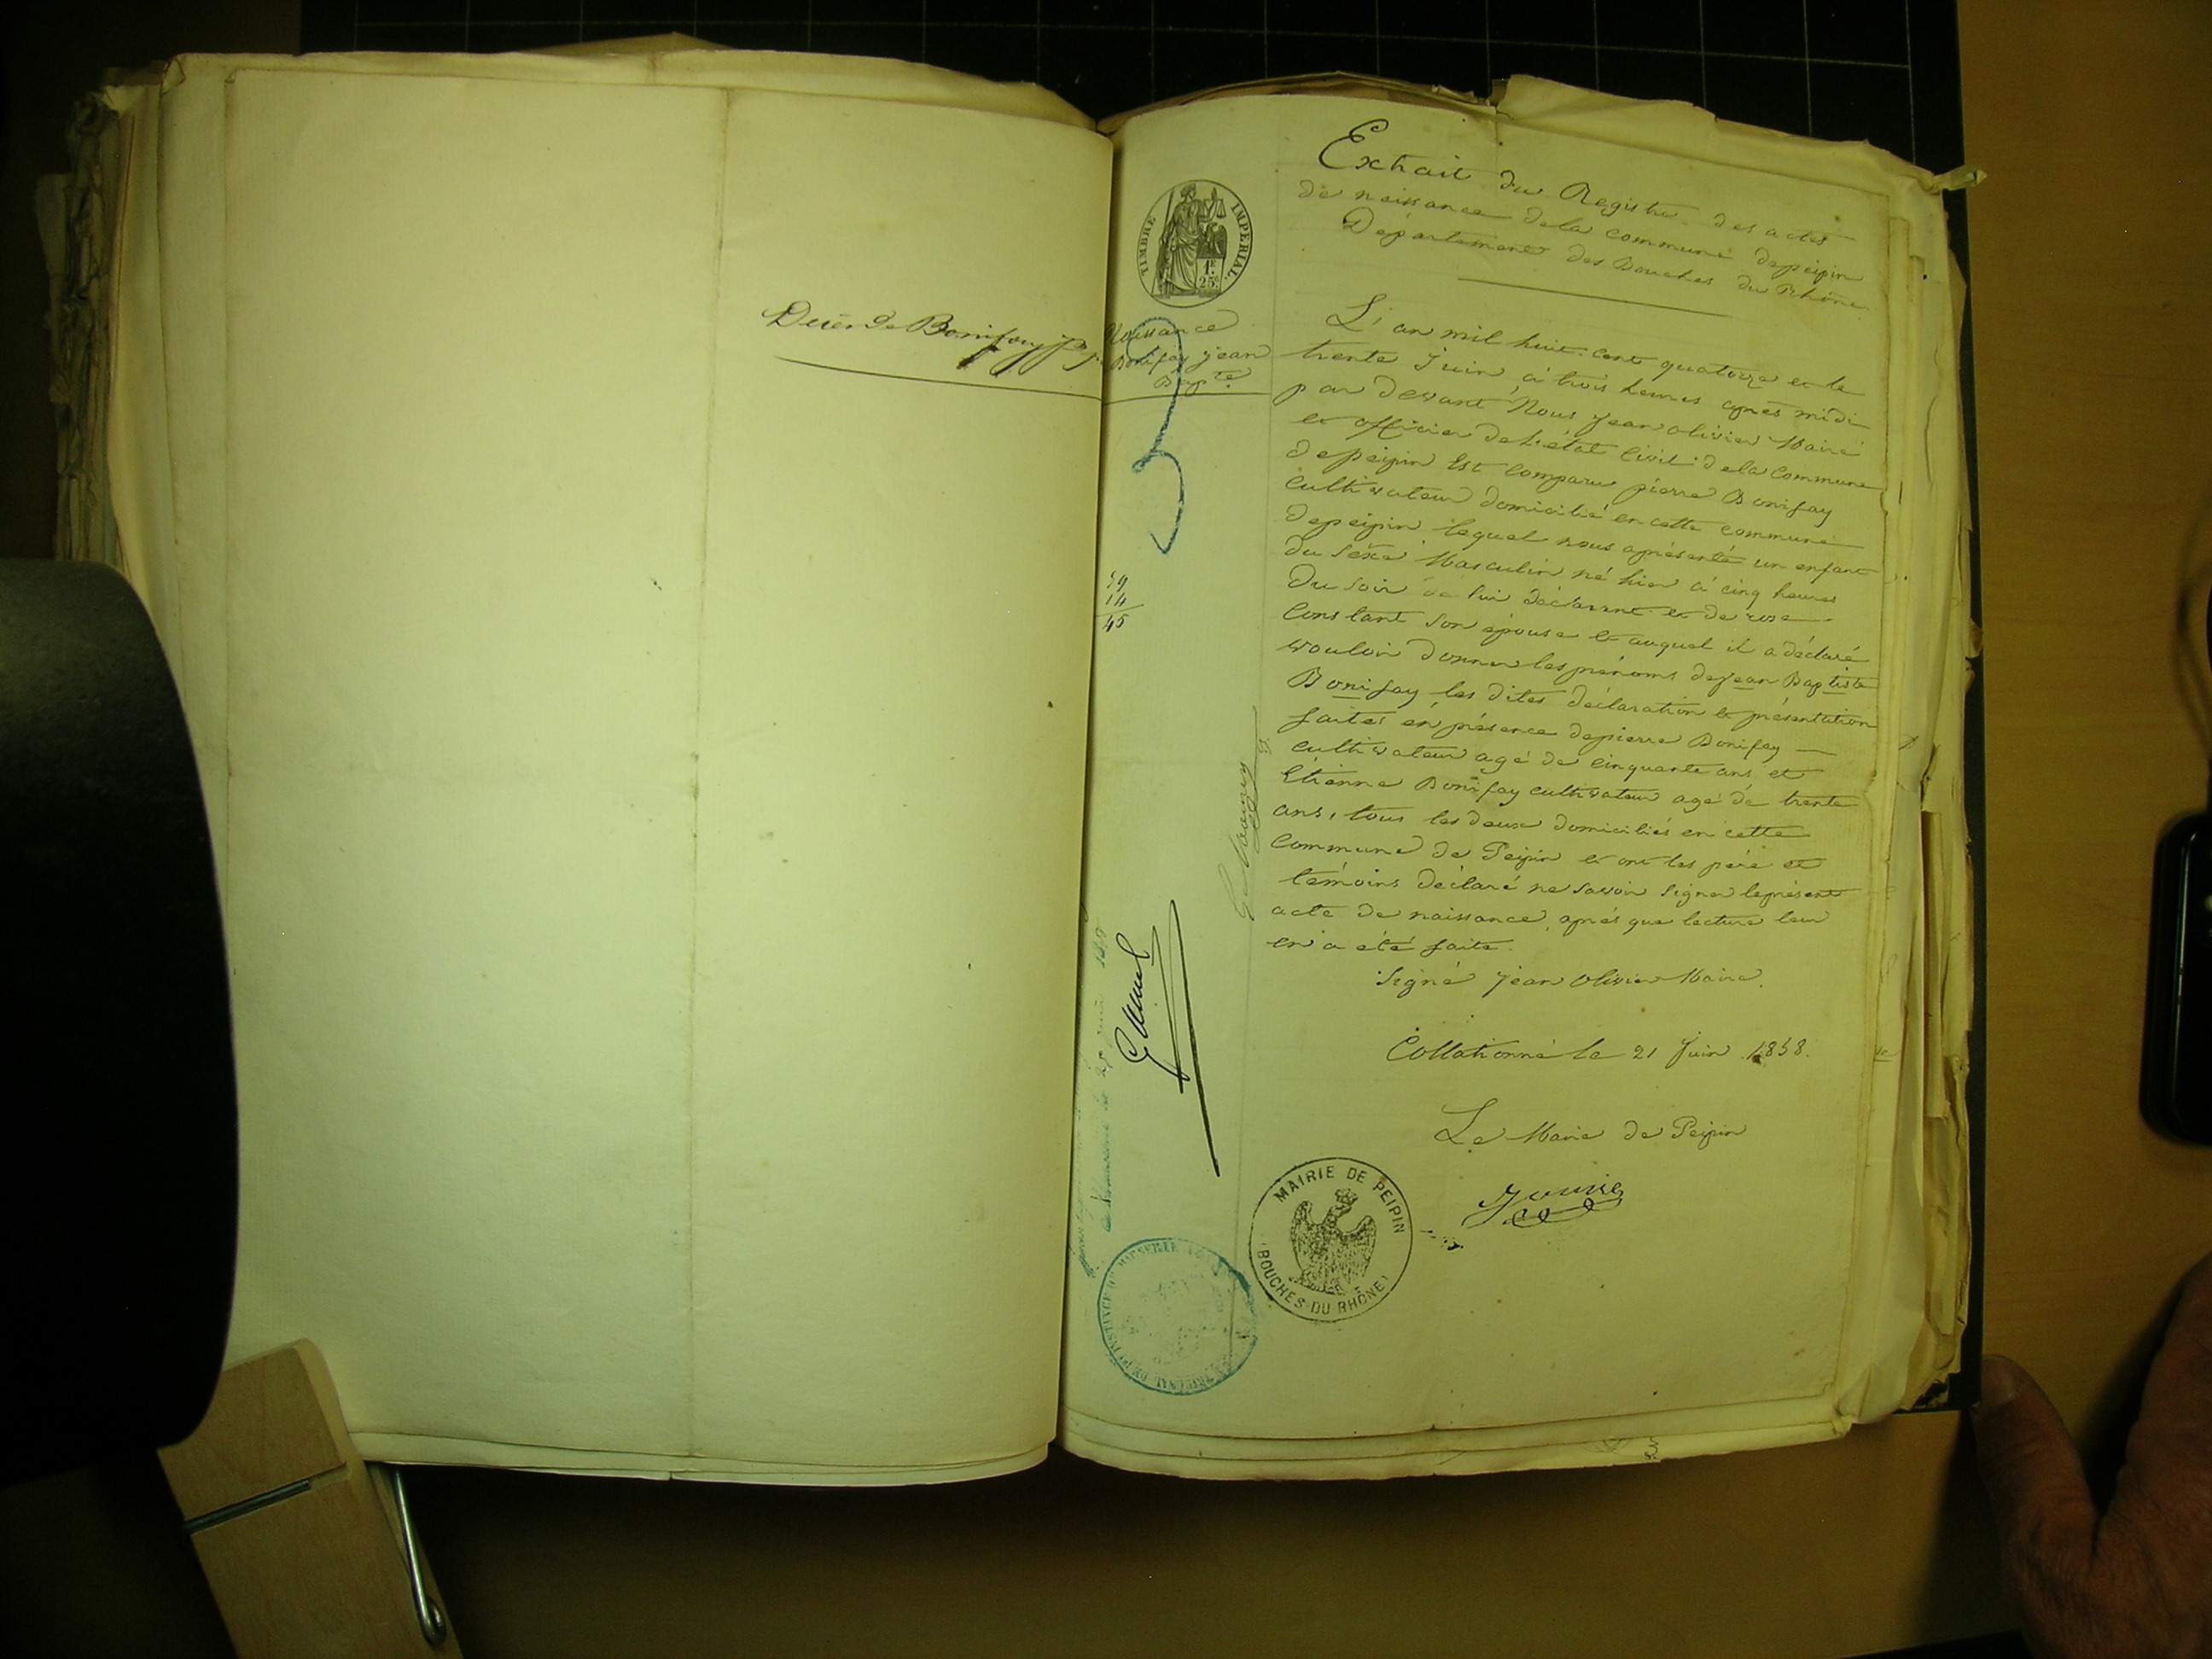 Décès de Bonifay
TIMBRE IMPERIAL
1F
25c
Naissance
Bonifay jean
Bapte
59
14
45
Extrait du Registre des actes
de naissance dela commune depeipin
Département des Bouches du Rhône
L'an mil huit cent quatorze et le
trente Juin à trois heures après midi
par devant Nous Jean olivier Maire
et officier de l'état Civil dela Commune
depeipin Est Comparu pierre Bonifay
Cultivateur domicilié en cette commune
depeipin lequel nous aprésenté un enfant
du sexe Masculin né hier à cinq heures
du soir de lui déclarant et de rose
Constant son épouse et auquel il a déclaré
vouloir donner les prénoms dejean Baptiste
Bonifay les dites déclaration et présentation
faites en présence depierre Bonifay
cultivateur agé de Cinquante ans et
Etienne Bonifay cultivateur agé de trente
ans, tous les deux domiciliés en cette
Commune de Peipin et ont les père et
témoins déclaré ne savoir signer leprésent
acte de naissance, après que lecture leur
en a été faite.
Signé jean Olivier Maire.
Collationné le 21 Juin 1858.
Le Maire de Peipin
MAIRIE DE PEIPIN
BOUCHES-DU-RHÔNE